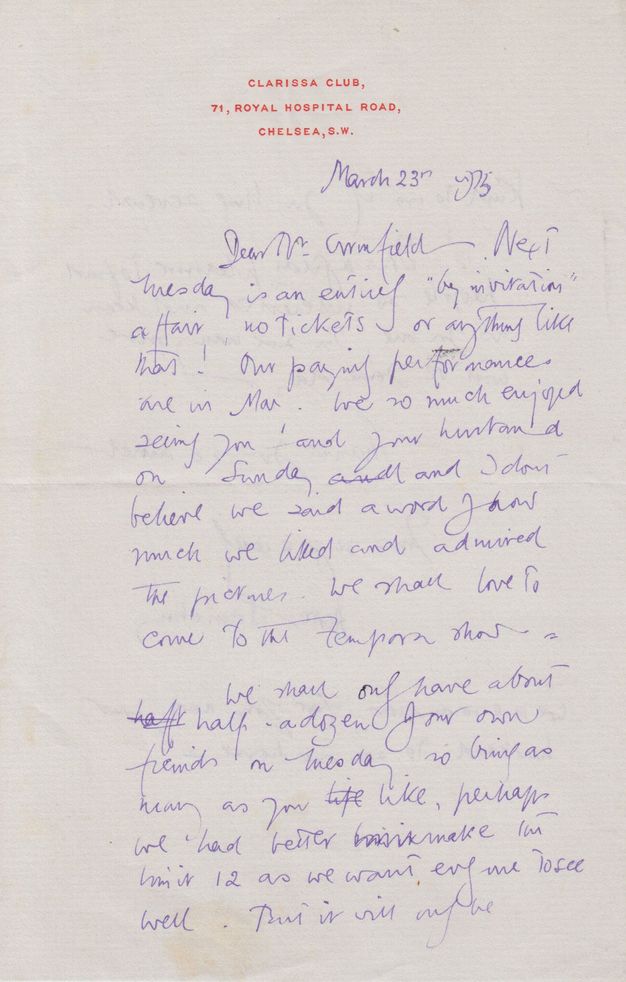 CLARISSA CLUB,
71, ROYAL HOSPITAL ROAD,
CHELSEA, S.W.
March 23rd
Dear Mr. Next
Tuesday is an entirely "by invitation"
affair no tickets or anything like
that! Our paying performances
are in May. We so much enjoyed
seeing you and your husband
on Sunday and I don't
believe we said a word of how
much we liked and admired
the pictures. We shall love to
come to the Tempera show =
We shall only have about
half-a-dozen of our own
friends on Tuesday so bring as
many as you like, perhaps
we had better make the
limit 12 as we want everyone to see
well. But it will only be